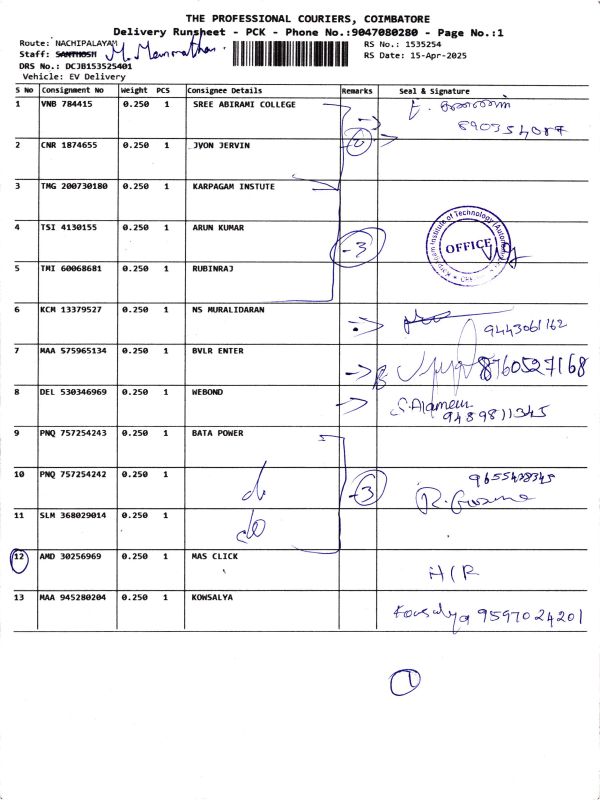 THE PROFESSIONAL COURIERS, COIMBATORE
Delivery Runsheet - PCK - Phone No.:9047080280 - Page No.:1
Route: NACHIPALAYAM
Staff: SANTHOSH
DRS No.: DCJB153525401
Vehicle: EV Delivery
RS No.: 1535254
RS Date: 15-Apr-2025
S No Consignment No Weight PCS Consignee Details Remarks Seal & Signature
1 VNB 784415 0.250 1 SREE ABIRAMI COLLEGE
2 CNR 1874655 0.250 1 JVON JERVIN
3 TMG 200730180 0.250 1 KARPAGAM INSTUTE
4 TSI 4130155 0.250 1 ARUN KUMAR -3 OFFICE
5 TMI 60068681 0.250 1 RUBINRAJ
6 KCM 13379527 0.250 1 NS MURALIDARAN 9443061162
7 MAA 575965134 0.250 1 BVLR ENTER 8760527168
8 DEL 530346969 0.250 1 WEBOND 9489811345
9 PNQ 757254243 0.250 1 BATA POWER
10 PNQ 757254242 0.250 1 do -3
11 SLM 368029014 0.250 1 do
12 AMD 30256969 0.250 1 MAS CLICK H/R
13 MAA 945280204 0.250 1 KOWSALYA Kowsalya 9597024201
1